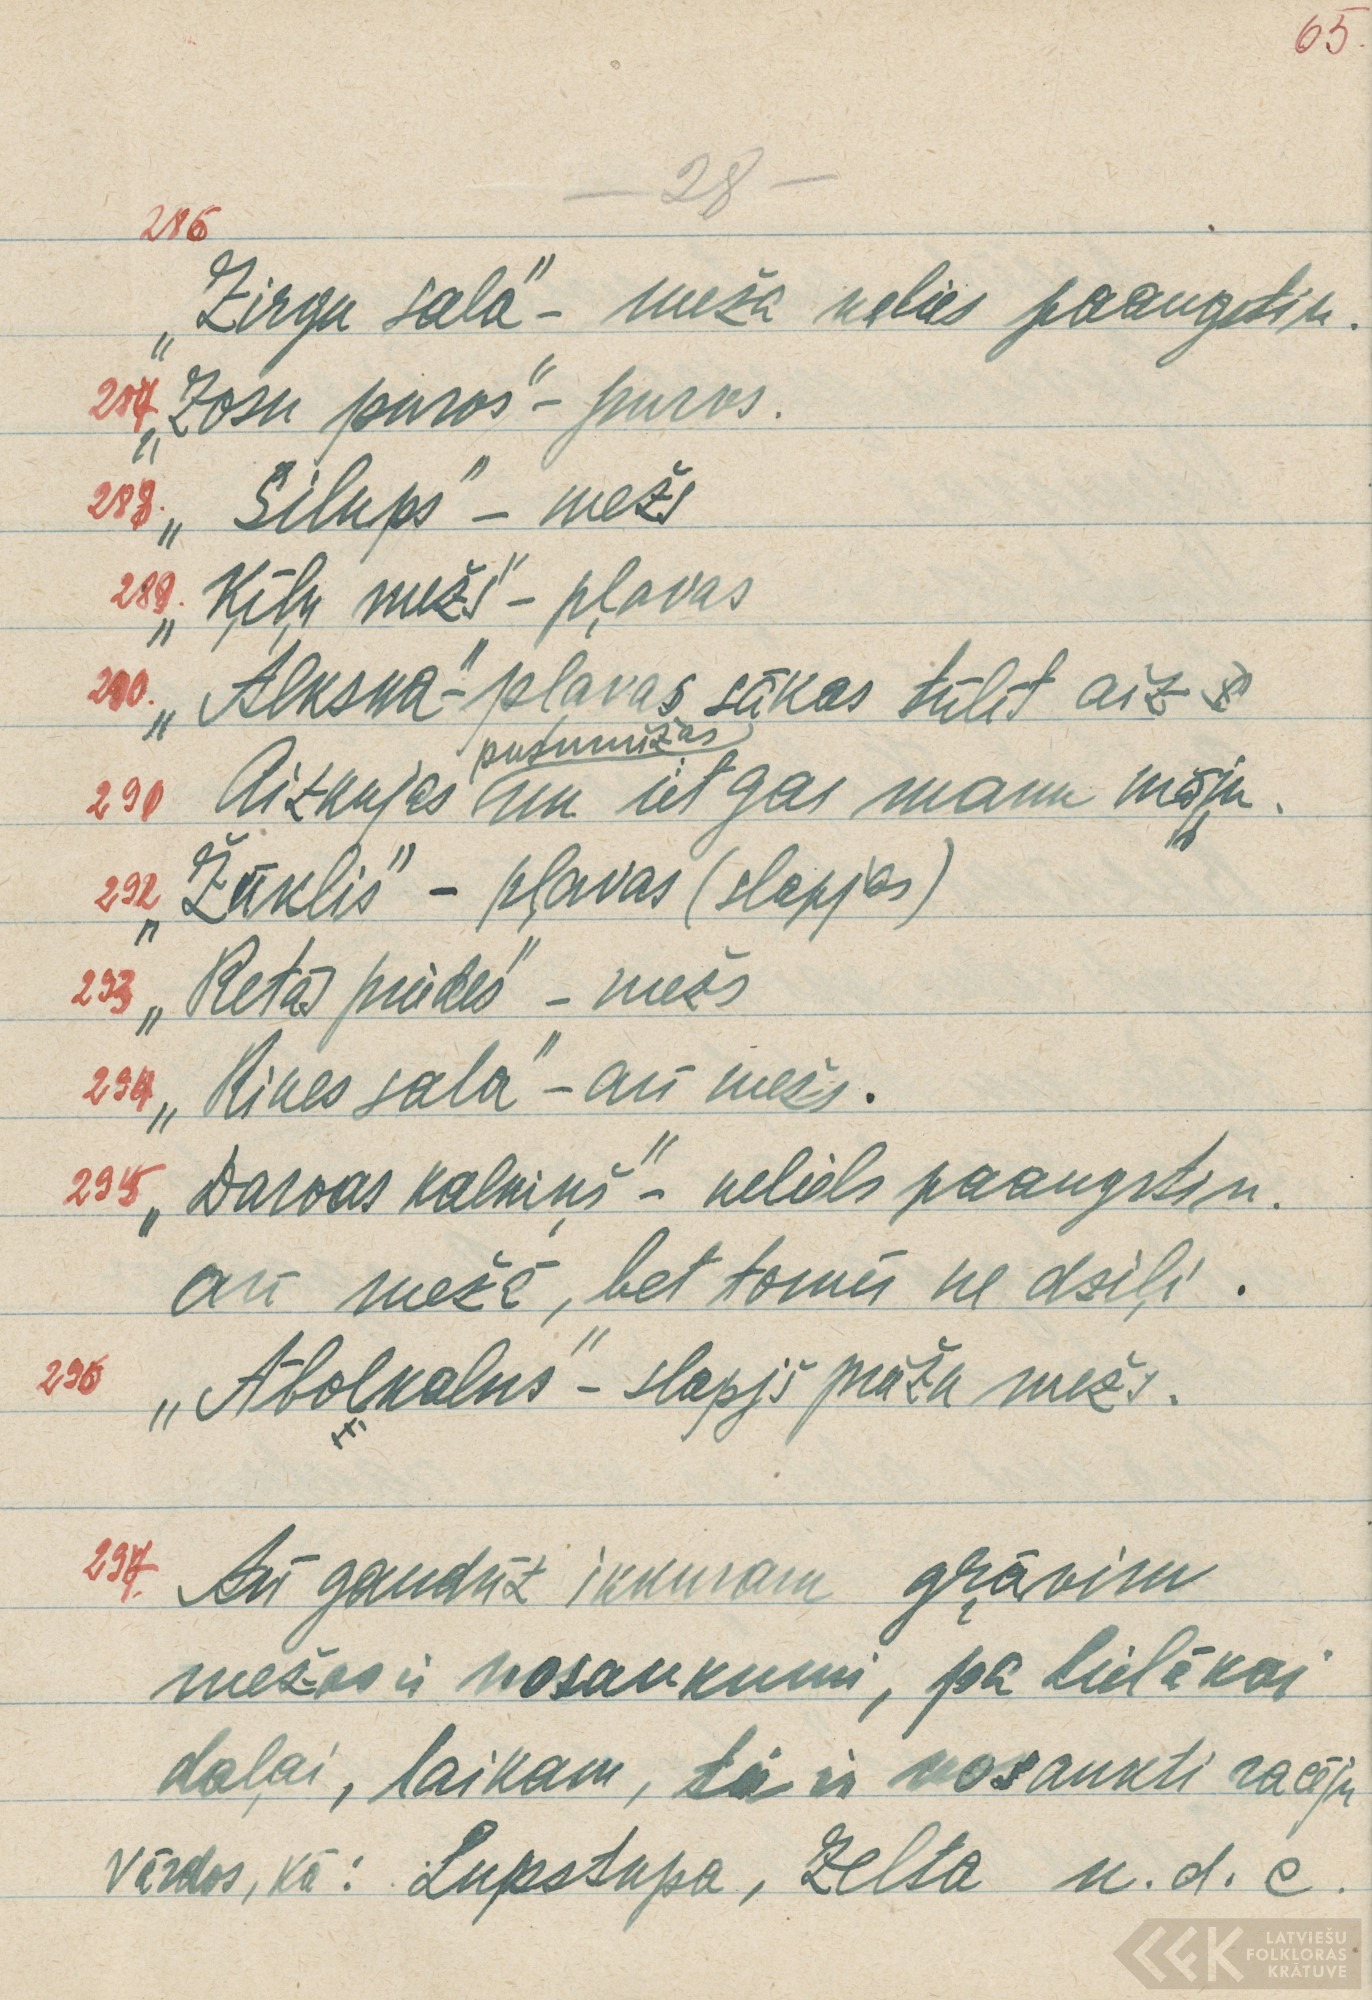 65.
— 28 —
286
„Zirgu sala" – meža neliels paangstin.
287. „Zosu purvs" – purvs.
288. „Silups" – mežs
289. „Ķīļu mežs" – pļavas
290. „Alksna" – pļavas sākas tūlīt aiz
pusmuižas
291 Aizkujas un iet gar manu māju.
292 „Žūklis" – pļavas (slapjas)
293 „Retās priedes" – mežs
294 „Rines sala" – arī mežs.
295 „Darvas kalniņš" – neliels paangstin.
arī mežā, bet tomēr ne dziļi.
296 „Ābolkalns" – slapjš prāžu mežs.
297. Arī gandrīz ikkuram grāvim
mežos ir nosaukumi, pa lielākai
daļai, laikam, tie ir nosaukti racēju
vārdos, kā: Lupstupa, Zelta u. d. c.
LATVIEŠU
FOLKLORAS
KRĀTUVE